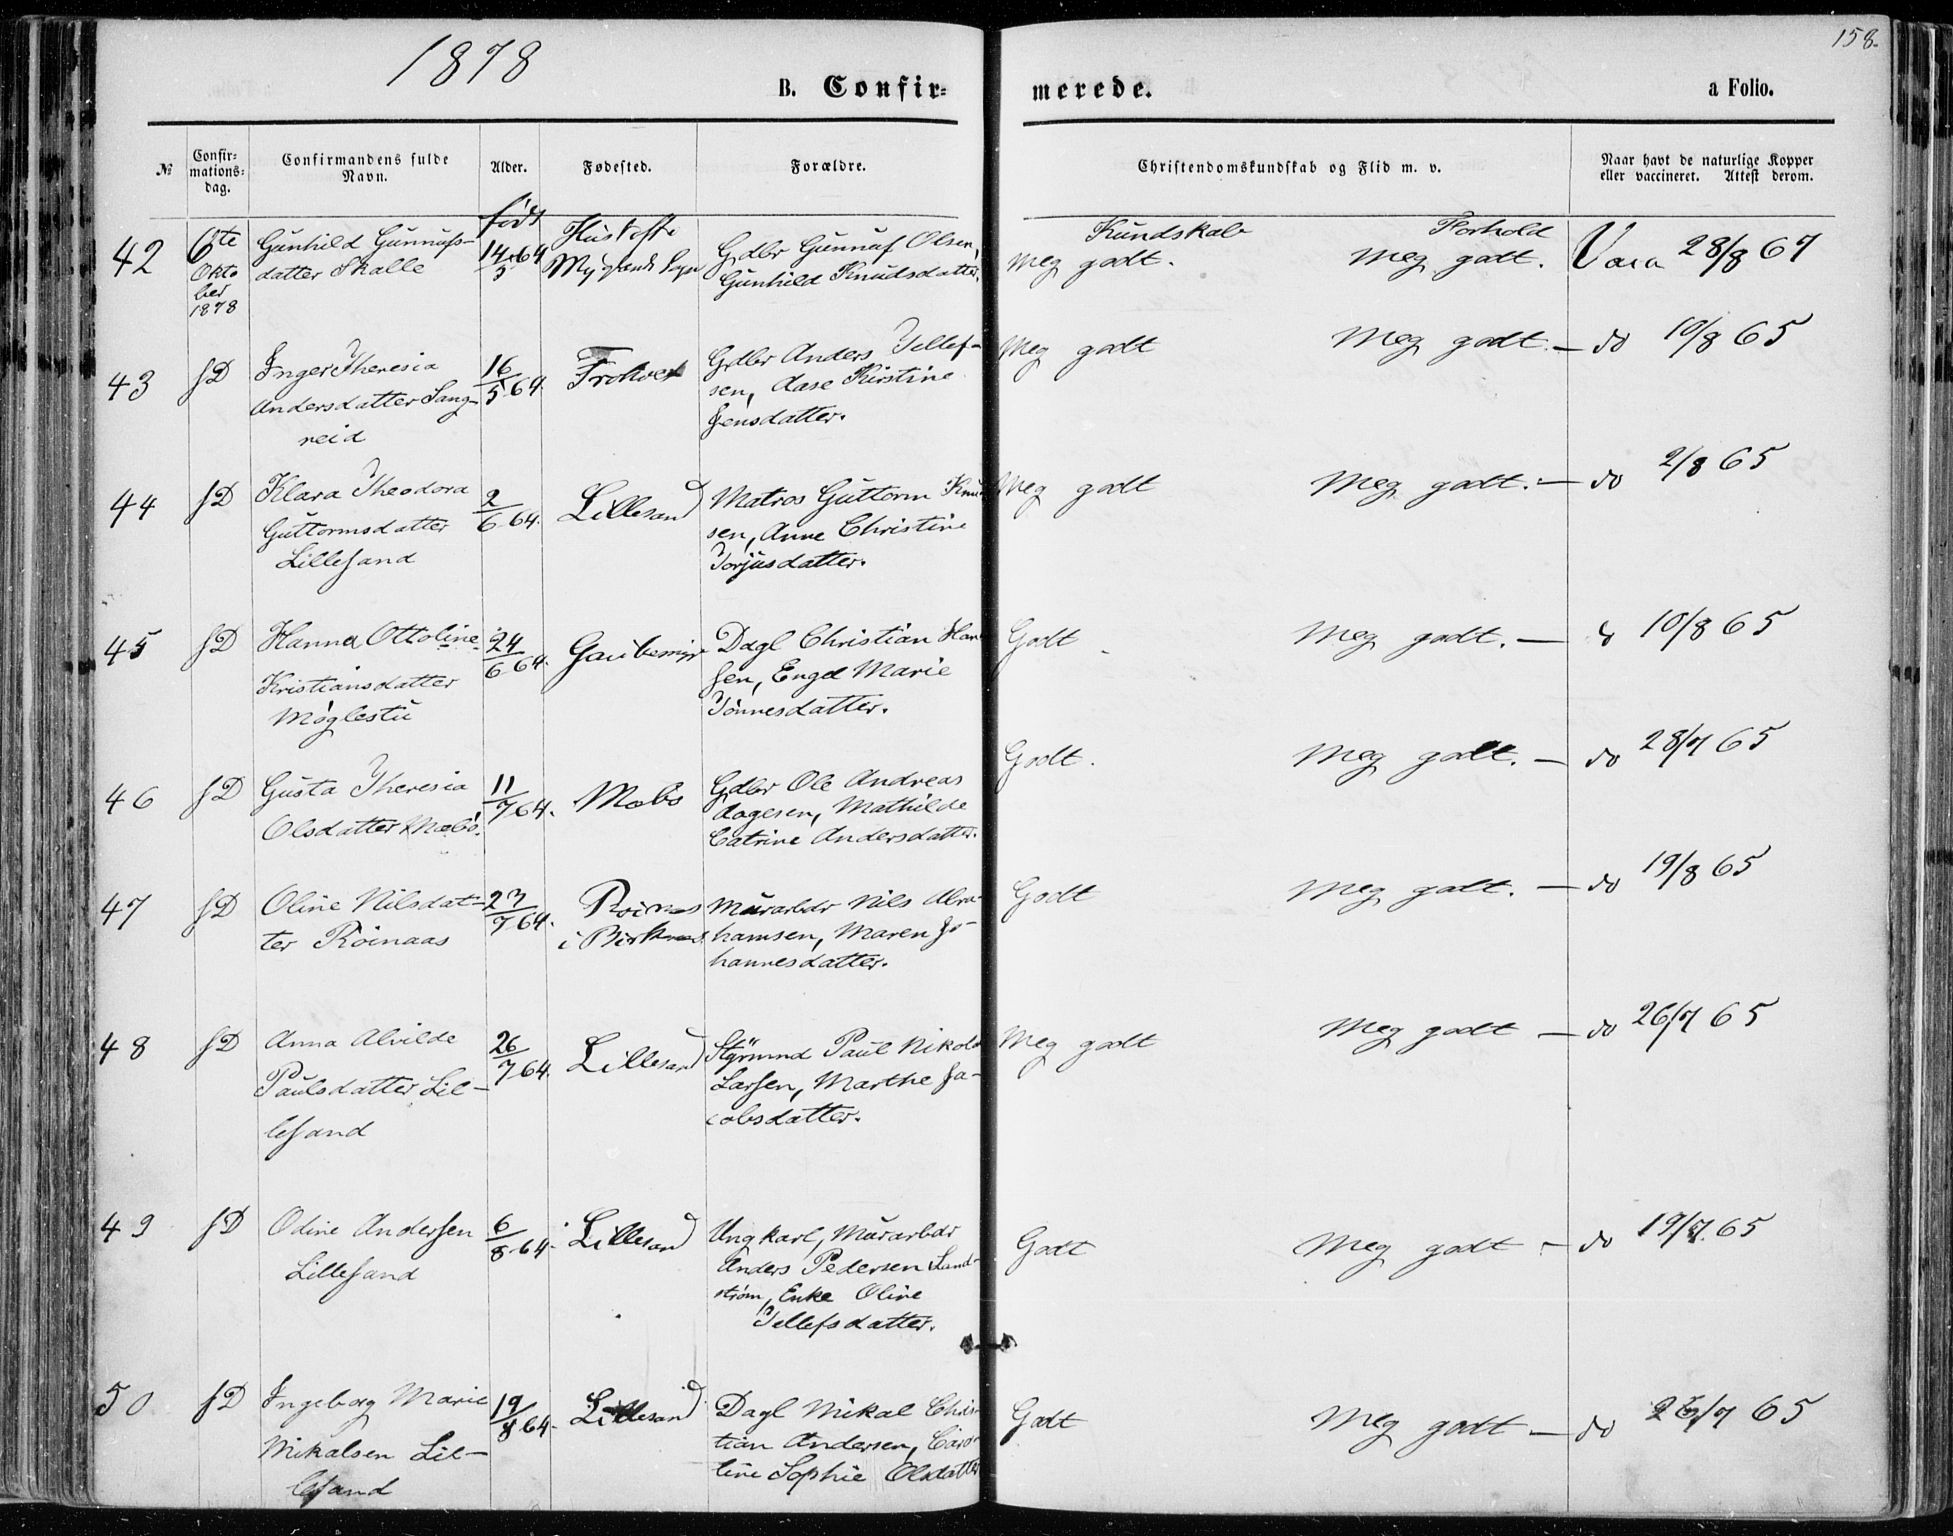 1878
158.
B. Confir=
merede.
a Folio.
№
Confir=
mations=
dag.
Confirmandens fulde
Navn.
Alder.
Fødested.
Forældre.
Christendomskundskab og Flid m. v.
Naar havt de naturlige Kopper
eller vaccineret. Attest derom.
født
Kundskab
Forhold
42
6te
Okto
ber
1878
Gunhild Gunnufs-
datter Skalle
14/5 64
Gdbr Gunnuf Olsen,
Gunhild Knudsdatter.
Meg godt.
Meg godt.
Vacc 28/8 67
43
sD
Inger Theresia
Andersdatter Sang-
reid
16/5 64.
Gdbr Anders Tellef-
sen, Aase Kirstine
Jensdatter.
Meg godt
Meg godt. — do 10/8 65
44
sD
Klara Theodora
Guttormsdatter
Lillesand
2/6 64.
Lillesand
Matros Guttorm Knud
sen, Anne Christine
Torjusdatter.
Meg godt
Meg godt. — do 2/8 65
45
sD
Hanna Ottoline
Kristiansdatter
Møglestu
24/6 64.
Gaubemyr
Dagl Christian Han
sen, Engel Marie
Tønnesdatter.
Godt
Meg godt. — 10/8 65
46
sD
Gusta Theresia
Olsdatter Mæbø.
11/7 64.
Mæbø
Gdbr Ole Andreas
Aagesen, Mathilde
Catrine Andersdatter.
Godt.
Meg godt. — do 28/7 65
47
sD
Oline Nilsdat-
ter Röinaas
23/7 64.
i Birknes.
Murarbdr Nils Abra-
hamsen, Maren Jo-
hannesdatter.
Godt
Meg godt. — do 19/8 65
48
sD
Anna Alvilde
Paulsdatter Lil-
lesand
26/7 64.
Lillesand
Styrmnd Paul Nikolai
Larsen, Marthe Ja-
cobsdatter.
Meg godt
Meg godt — do 26/7 65
49
sD
Odine Andersen
Lillesand
6/8 64.
Lillesand
Ungkarl, Murarbdr
Anders Pedersen Sand-
strøm, Enke Oline
Tellefsdatter.
Godt
Meg godt — do 19/7 65
50
sD
Ingeborg Marie
Mikalsen Lil-
lesand
19/8 64.
Lillesand
Dagl Mikal Chris-
tian Andersen, Caro-
line Sophie Olsdatter
Godt
Meg godt — do 26/7 65